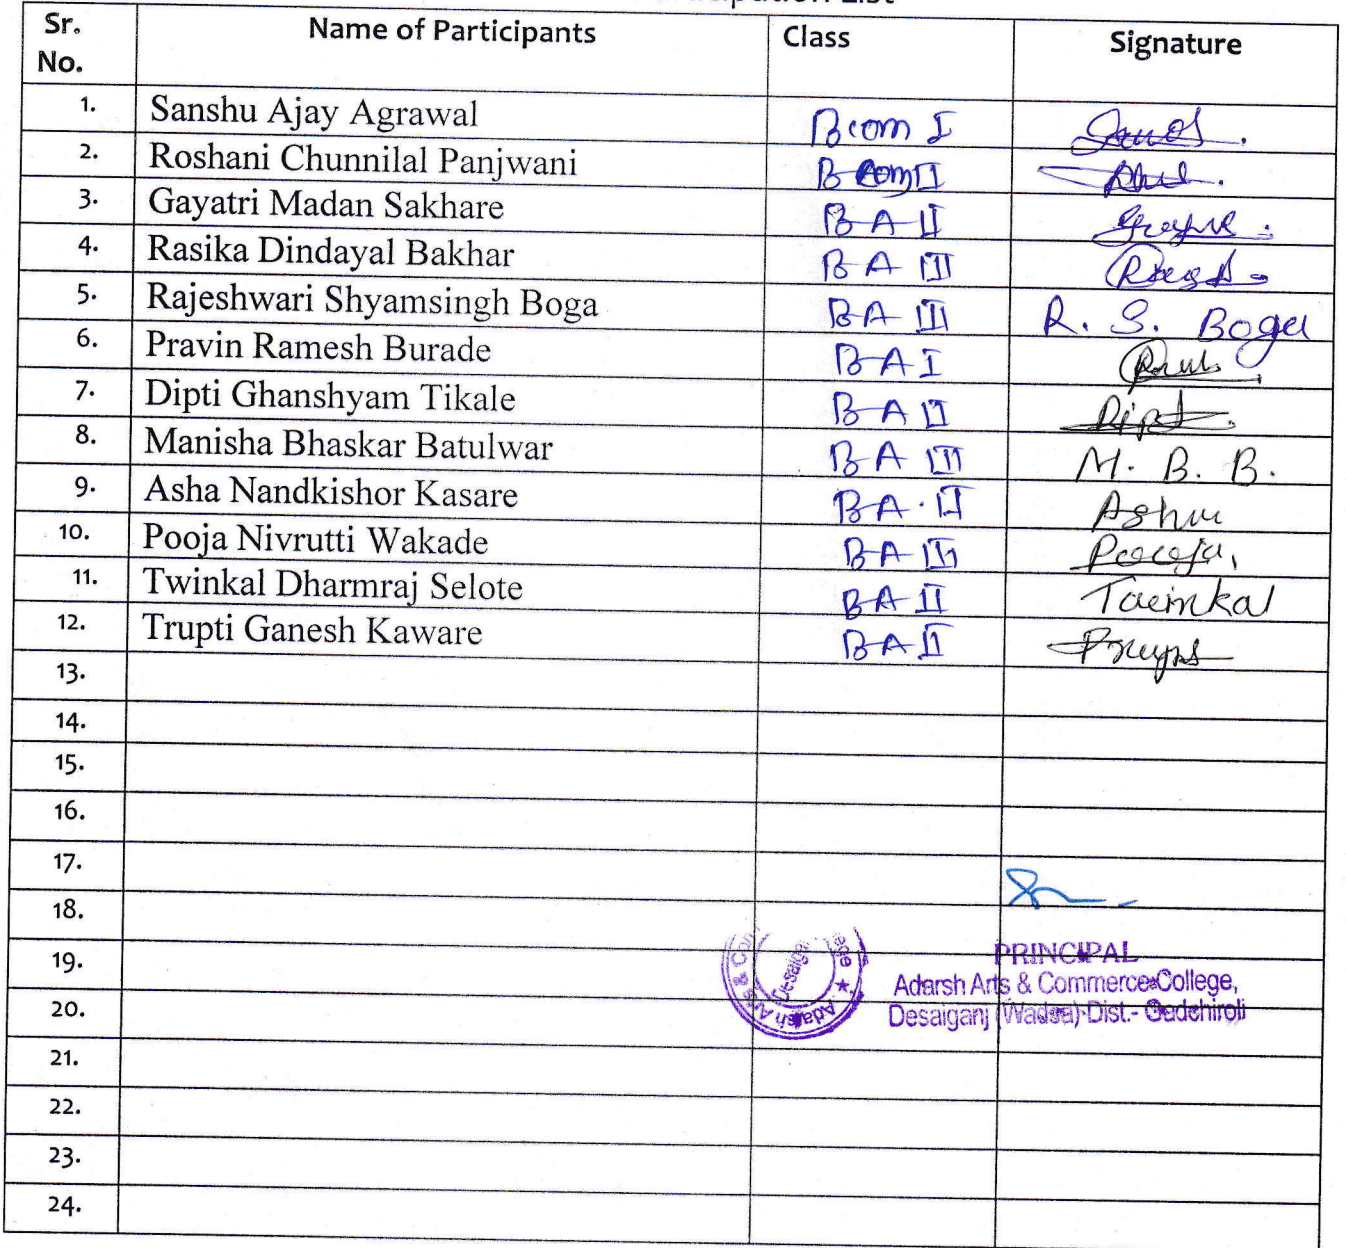 List
Sr. No. Name of Participants Class Signature
1. Sanshu Ajay Agrawal Bcom I
2. Roshani Chunnilal Panjwani B com II
3. Gayatri Madan Sakhare B A II
4. Rasika Dindayal Bakhar B A III
5. Rajeshwari Shyamsingh Boga B A III R. S. Boga
6. Pravin Ramesh Burade B A I
7. Dipti Ghanshyam Tikale B A II Dipti
8. Manisha Bhaskar Batulwar B A III M. B. B.
9. Asha Nandkishor Kasare B A . II
10. Pooja Nivrutti Wakade B A III Pooja
11. Twinkal Dharmraj Selote B A II Twinkal
12. Trupti Ganesh Kaware B A II
13.
14.
15.
16.
17.
18.
19.
20.
21.
22.
23.
24.
PRINCIPAL
Adarsh Arts & Commerce College,
Desaiganj (Wadsa) Dist.- Gadchiroli